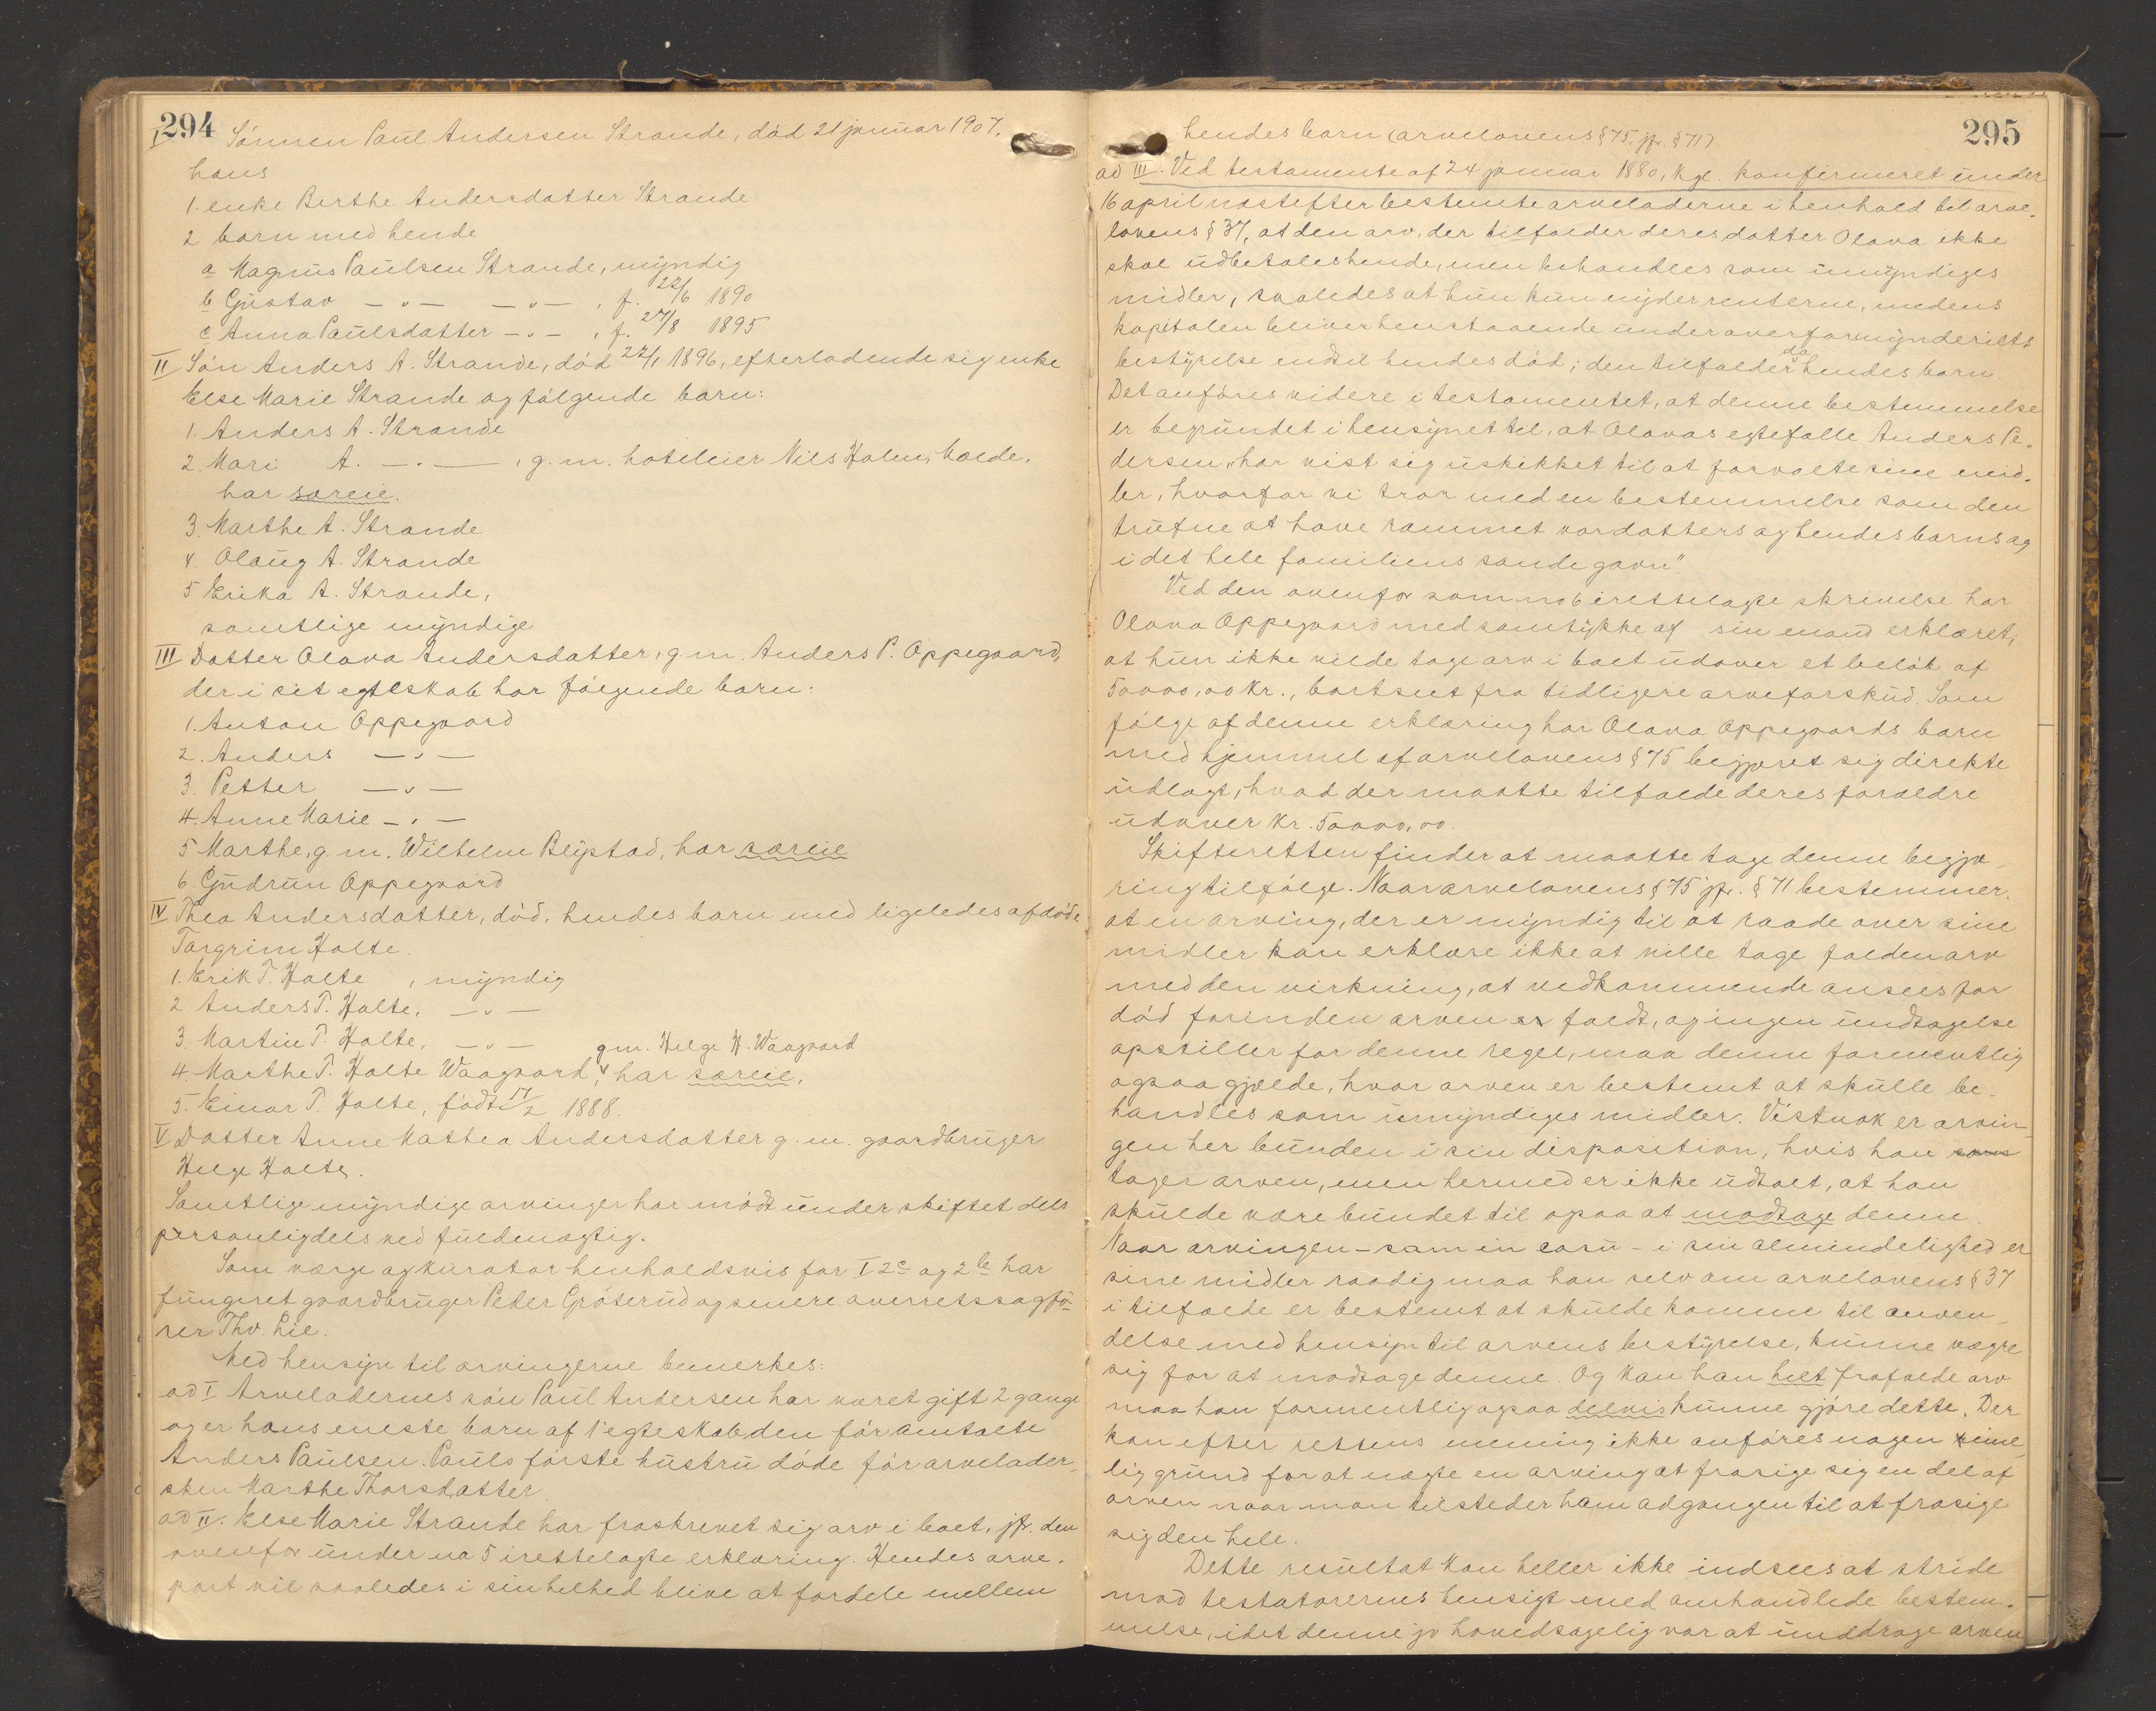 294
I Sønnen Paul Andersen Strande, død 21 januar 1907,
hans
1. enke Berthe Andersdatter Strande
2 barn med hende
a Magnus Paulsen Strande, myndig
b Gustav —„— —„— , f. 22/6 1890
c Anna Paulsdatter —„— , f. 27/8 1895
II Søn Anders A. Strande, død 22/1 1896, efterladende sig enke
Else Marie Strande og følgende barn:
1. Anders A. Strande
2. Mari A. —„— , g.m. hoteleier Nils Holen,
har særeie.
3. Marthe A. Strande
4. Olaug A. Strande
5 Erika A. Strande,
samtlige myndige
III Datter Olava Andersdatter, g.m. Anders P. Oppegaard,
der i sit egteskab har følgende barn:
1. Anton Oppegaard
2. Anders —„—
3. Petter —„—
4. Anne Marie —„—
5 Marthe, g.m. Wilhelm Blystad, har særeie
6 Gudrun Oppegaard
IV Thea Andersdatter, død, hendes barn med ligeledes afdøde
Torgrim Holte.
1. Erik T. Holte , myndig
2 Anders T. Holte, —„—
3 Martin T. Holte, —„— gm. Helge H. Waagaard
4. Marthe T. Holte Waagaard, har særeie,
5. Einar T. Holte, født 17/2 1888.
V Datter Anne Mathea Andersdatter g.m. gaardbruger
Helge Holte.
Samtlige myndige arvinger har mødt under skiftet dels
personlig dels ved fuldmægtig.
Som værge og kurator henholdsvis for I 2c og 2b har
fungeret gaardbruger Peder Grøterud og senere overretssagfø-
rer Thv. Lie.
Med hensyn til arvingerne bemerkes:
ad I Arveladernes søn Paul Andersen har været gift 2 gange
og er hans eneste barn af 1 egteskab den før omtalte
Anders Paulsen. Pauls første hustru døde før arvelader-
sken Marthe Thorsdatter
ad II. Else Marie Strande har fraskrevet sig arv i boet, jfr. den
ovenfor under no 5 irettelagte erklæring. Hendes arve-
part vil saaledes i sin helhed blive at fordele mellem
295
hendes barn (arvelovens § 75, jfr. § 71).
ad III. Ved testamente af 24 januar 1880, kgl. konfirmeret under
16 april næstefter bestemte arveladerne i henhold til arve-
lovens § 37, at den arv, der tilfalder deres datter Olava ikke
skal udbetales hende, men behandles som umyndiges
midler, saaledes at hun kun nyder renterne, medens
kapitalen bliver henstaaende under overformynderiets
bestyrelse indtil hendes død; den tilfalder da hendes barn.
Det anføres videre i testamentet, at denne bestemmelse
er begrundet i hensynet til, at Olavas egtefælle Anders Pe-
dersen „har vist sig uskikket til at forvalte sine mid-
ler, hvorfor vi tror med en bestemmelse som den
trufne at have rammet vor datters og hendes barns og
i det hele familiens sande gavn".
Ved den ovenfor som no 6 irettelagte skrivelse har
Olava Oppegaard med samtykke af sin mand erklæret,
at hun ikke vilde tage arv i boet udover et beløb af
50000,00 kr., bortset fra tidligere arveforskud. Som
følge af denne erklæring har Olava Oppegaards barn
med hjemmel af arvelovens § 75 begjæret sig direkte
udlagt, hvad der maatte tilfalde deres forældre
udover kr. 50000,00.
Skifteretten finder at maatte tage denne begjæ-
ring tilfølge. Naar arvelovens § 75 jfr. § 71 bestemmer,
at en arving, der er myndig til at raade over sine
midler kan erklære ikke at ville tage falden arv
med den virkning, at vedkommende ansees for
død forinden arven er faldt, og ingen undtagelse
opstiller for denne regel, maa denne formentlig
ogsaa gjælde, hvor arven er bestemt at skulle be-
handles som umyndiges midler. Vistnok er arvin-
gen her bunden i sin disposition, hvis han
tager arven, men hermed er ikke udtalt, at han
skulde være bundet til ogsaa at modtage denne.
Naar arvingen – som in casu – i sin almindelighed er
sine midler raadig maa han selv om arvelovens § 37
i tilfælde er bestemt at skulde komme til anven-
delse med hensyn til arvens bestyrelse, kunne vægre
sig for at modtage denne. Og kan han helt frafalde arv
maa han formentlig ogsaa delvis kunne gjøre dette. Der
kan efter rettens mening ikke anføres nogen rime-
lig grund for at nægte en arving at frasige sig en del af
arven naar man tilsteder ham adgangen til at frasige
sig den hele.
Dette resultat kan heller ikke indsees at stride
mod testatorernes hensigt med omhandlede bestem-
melse, idet denne jo hovedsagelig var at unddrage arven